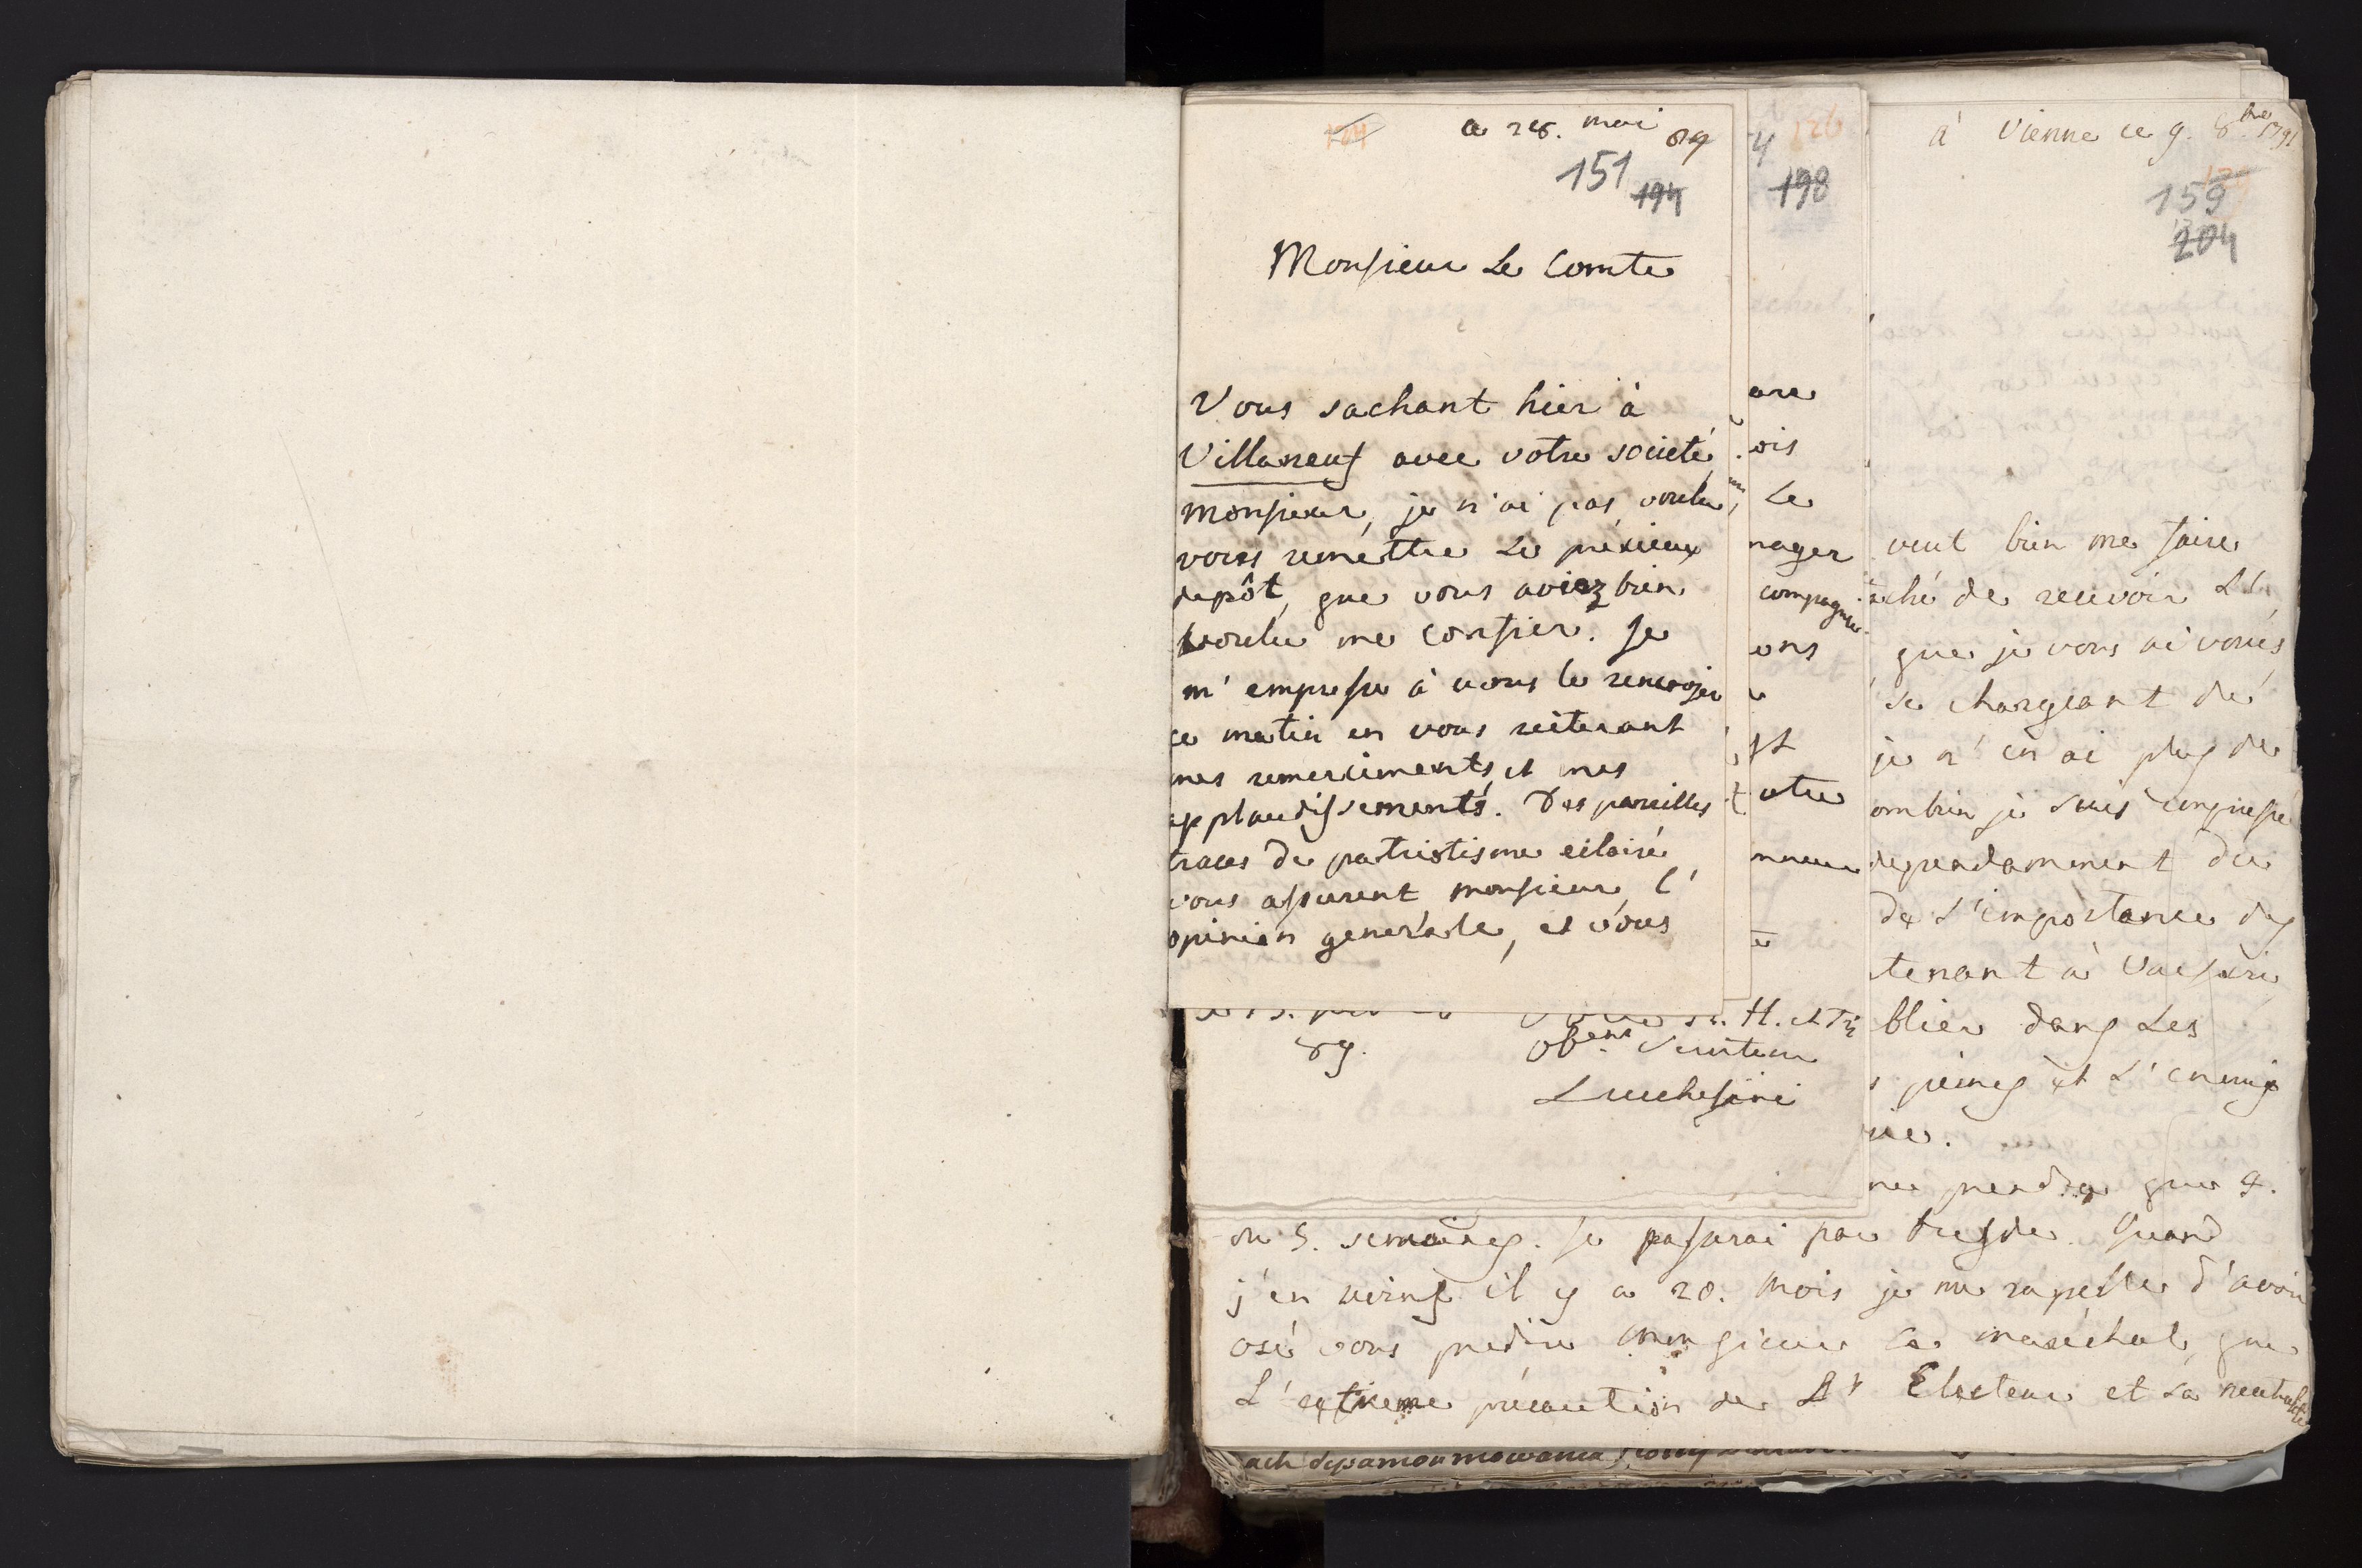 a 28. mai 89
151
194
Monsieur Le Comte
Vous sachant hier à
Villaneuf avec votre societé,
monsieur, je n'ai pas voulu
vous remettre Le precieux
depôt, que vous aviez bien
voulu me confier. Je
m'empresse à vous le renvoyer
ce matin en vous reiterant
mes remerciments et mes
applaudissements. Des pareilles
traces de patriotisme eclairé
vous assurent monsieur, l'
opinion generale, et vous
4 126
198
are
ois
Le
nager
compagnie
ons
st
otre
nneur
H. et Tr
89. obent Serviteur
Lucchesini
à Vienne ce 9. 8bre 1791
159
204
veut bien me faire
aché de recevoir Les
que je vous ai voués
se chargeant de
je n'en ai plus de
ombien je suis empressé
dependamment du
de L'importance des
tenant à Varsovie
blier dans Les
peines et L'ennui
ne prendra que 4.
ou 5. semaines. Je passerai par Dresde. Quand
j'en vins il y a 20. mois je me rapelle d'avoir
osé vous predire Monsieur Le maréchal, que
L'extreme précaution de Lr Electeur et sa neutralité